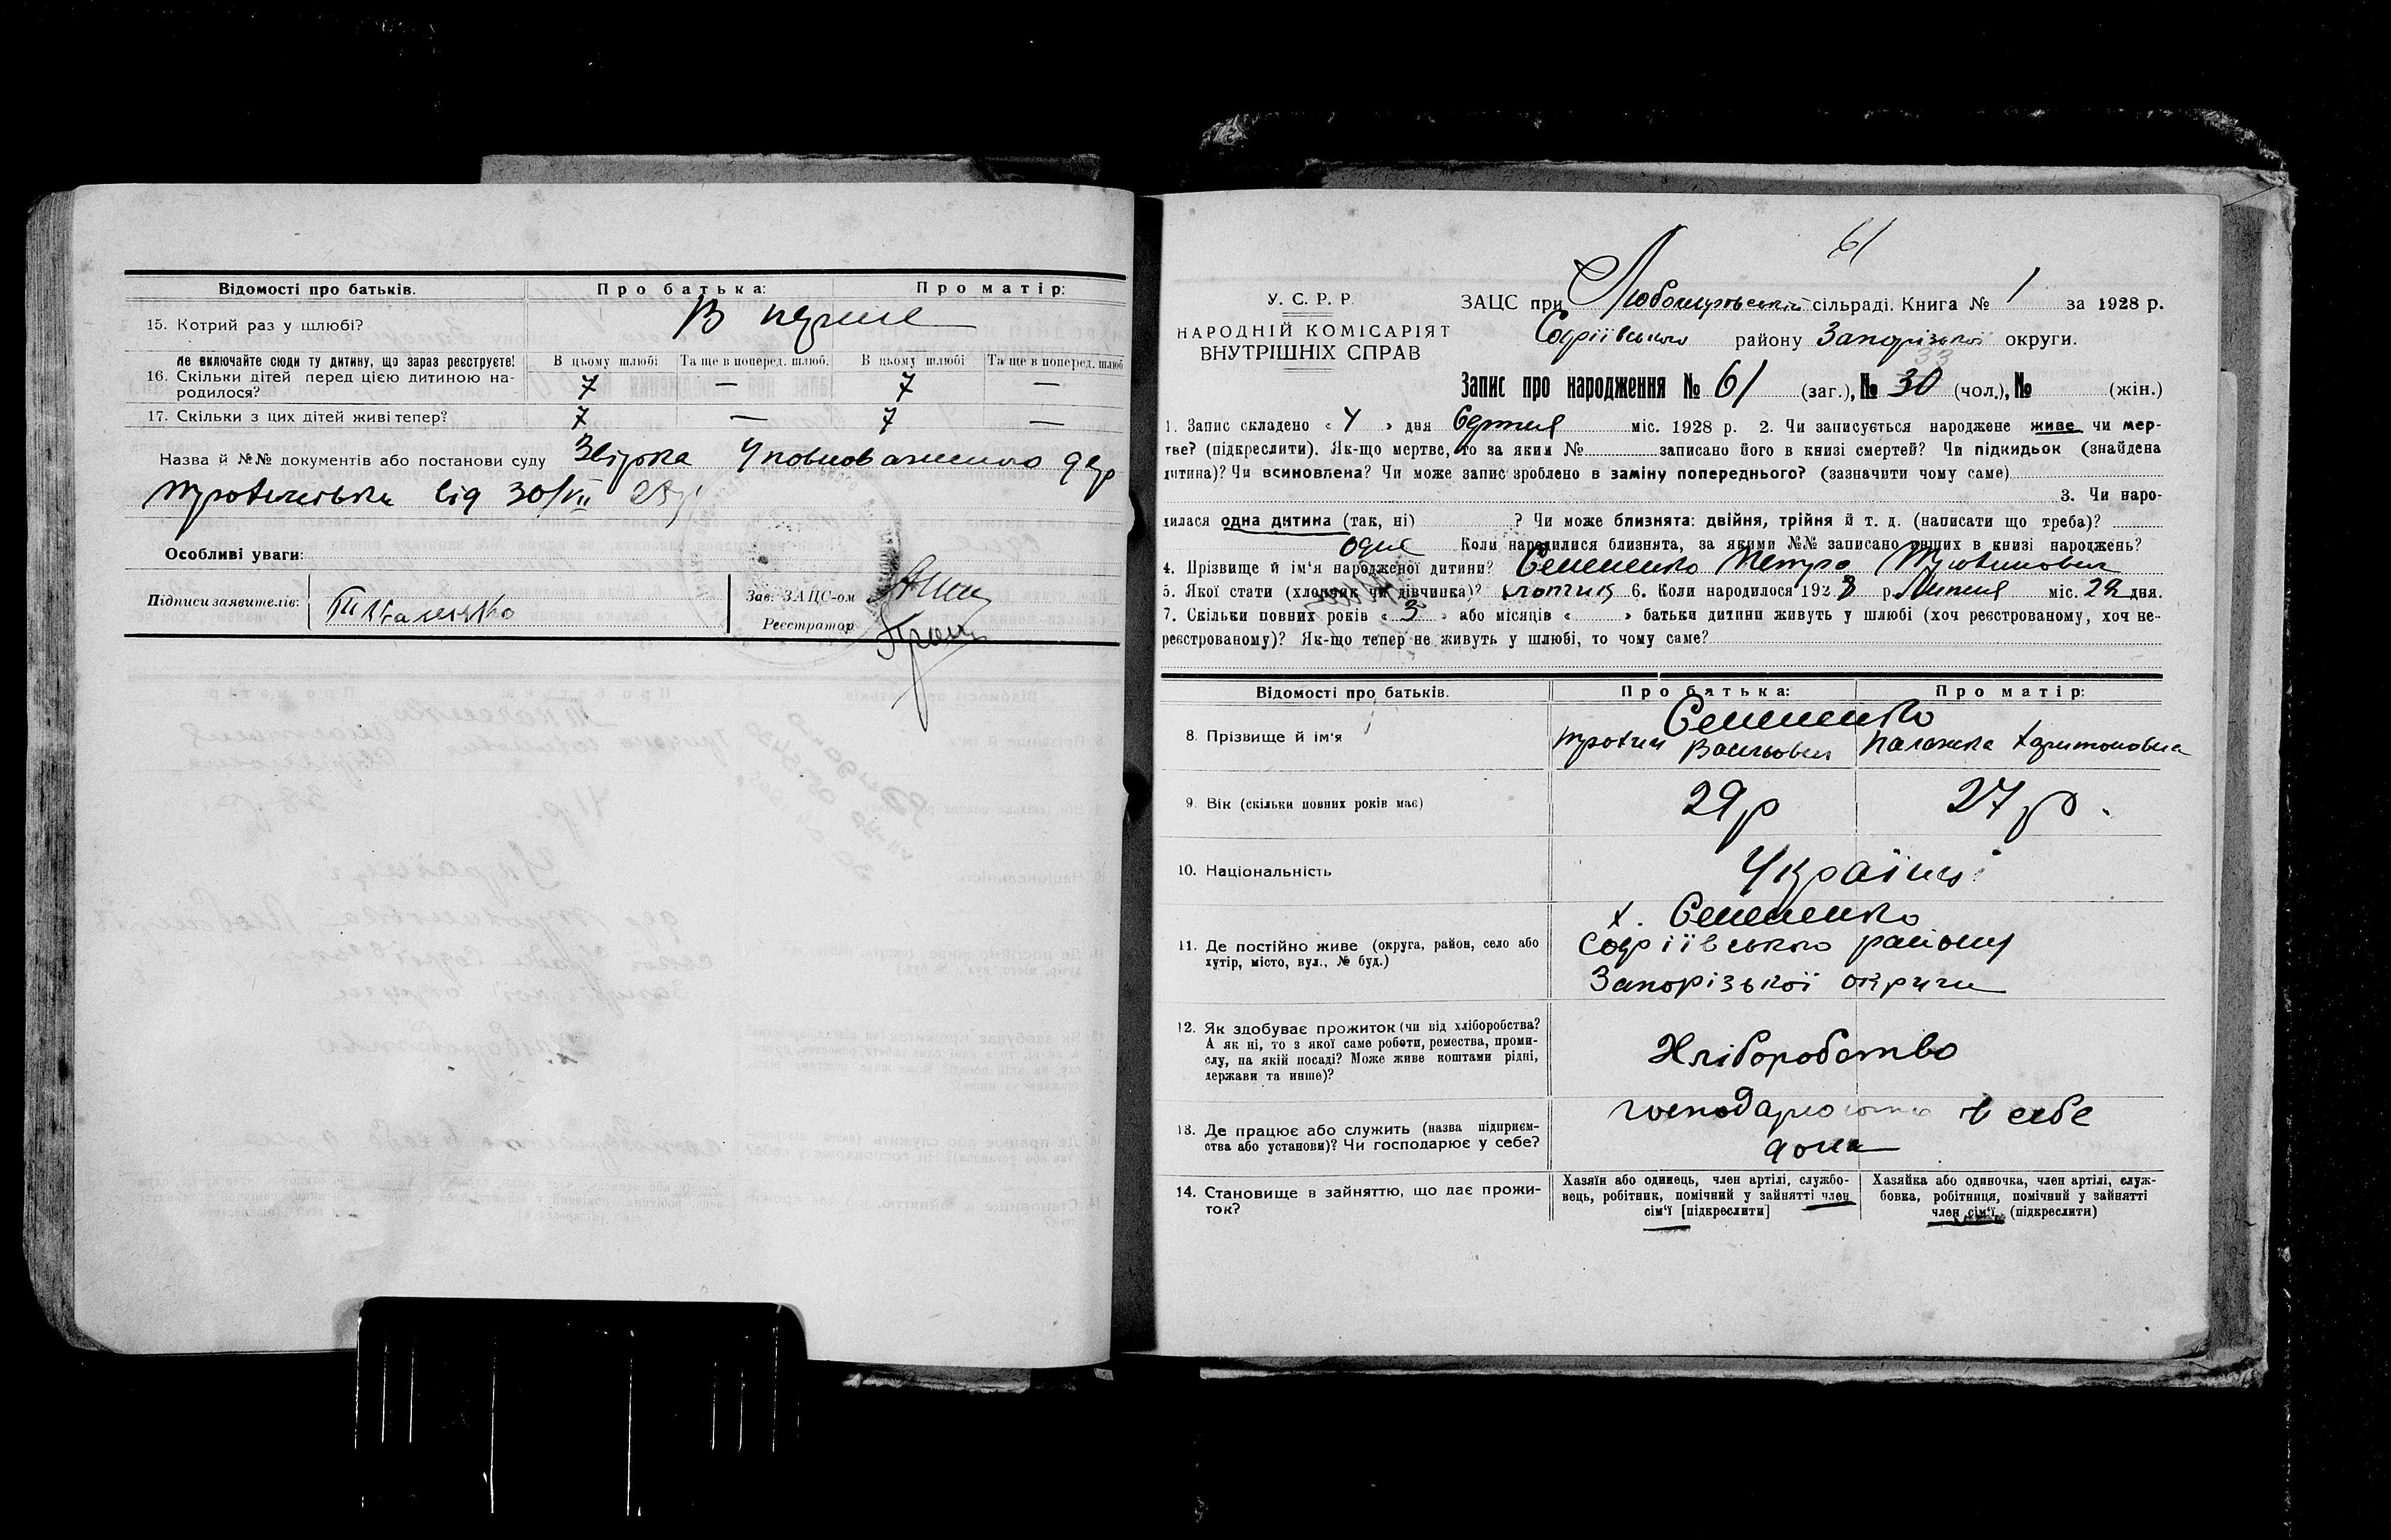 Відомості про батьків. Про батька: Про матір:
15. Котрий раз у шлюбі? В перше
Не включайте сюди ту дитину, що зараз реєструєте! В цьому шлюбі Та ще в поперед. шлюб. В цьому шлюбі Та ще в поперед. шлюб
16. Скільки дітей перед цією дитиною на-
родилося? 7 — 7 —
17. Скільки з цих дітей живі тепер? 7 — 7 —
Назва й №№ документів або постанови суду Звізка Уповноваженого дер
від 30/VII
Особливі уваги:
Підписи заявителів:
Зав. ЗАЦС-ом
Реєстратор
61
У. С. Р. Р.
НАРОДНІЙ КОМІСАРІЯТ
ВНУТРІШНІХ СПРАВ
ЗАЦС при сільраді. Книга № 1 за 1928 р.
Софіївського району Запорізької округи.
33
Запис про народження № 61 (заг.), № 30 (чол.), № (жін.)
1. Запис складено « 4 » дня Серпня міс. 1928 р. 2. Чи записується народжене живе чи мер-
тве? (підкреслити). Як-що мертве, то за яким № записано його в книзі смертей? Чи підкидьок (знайдена
дитина)? Чи всиновлена? Чи може запис зроблено в заміну попереднього? (зазначити чому саме)
3. Чи наро-
дилася одна дитина (так, ні) ? Чи може близнята: двійня, трійня й т. д. (написати що треба)?
одне Коли народилися близнята, за якими №№ записано инших в книзі народжень?
4. Прізвище й ім'я народженої дитини? Семененко Петро
5. Якої стати (хлопчик чи дівчинка)? хлопчик 6. Коли народилося 1928 р. Липня міс. 29 дня.
7. Скільки повних років « 3 » або місяців « » батьки дитини живуть у шлюбі (хоч реєстрованому, хоч не-
реєстрованому)? Як-що тепер не живуть у шлюбі, то чому саме?
Відомості про батьків. Про батька: Про матір:
Семененко
8. Прізвище й ім'я Васильович Палажка Харитоновна
9. Вік (скільки повних років має) 29 р 27 р.
10. Національність Українці
х. Семененко
11. Де постійно живе (округа, район, село або Софіївського району
хутір, місто, вул., № буд.)
Запорізької округи
12. Як здобуває прожиток (чи від хліборобства?
А як ні, то з якої саме роботи, ремества, проми-
слу, на якій посаді? Може живе коштами рідні, Хліборобство
держави та инше)?
господарюють в себе
13. Де працює або служить (назва підприєм-
ства або установи)? Чи господарює у себе? дома
14. Становище в зайняттю, що дає прожи-
ток?
Хазяїн або одинець, член артілі, службо-
вець, робітник, помічний у зайнятті член
сім'ї [підкреслити]
Хазяйка або одиночка, член артілі, служ-
бовка, робітниця, помічний у зайнятті
член сім'ї, (підкреслити)